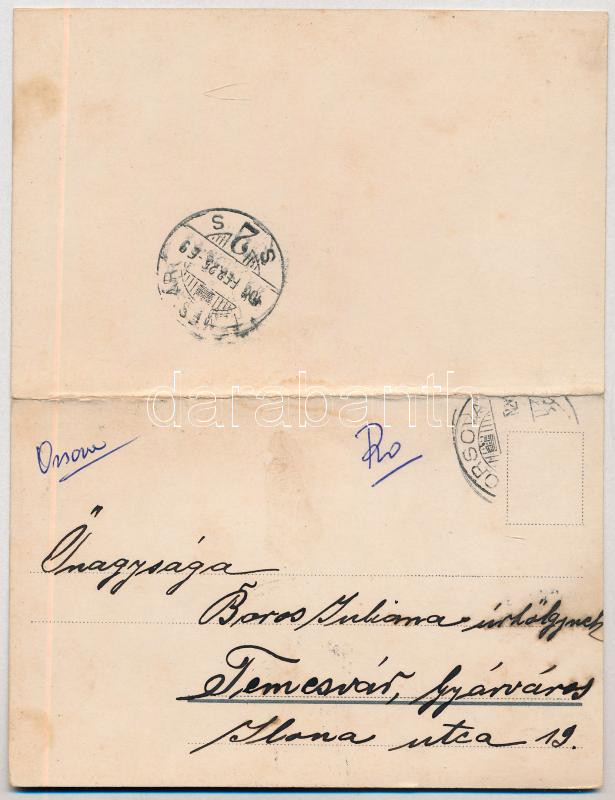 908 FEB 25
2
S S
darabanth
ORSOVA
Orsova
Ro
Őnagysága
Boros Juliana úrhölgynek
Temesvár, Gyárváros
Ilona utca 19.